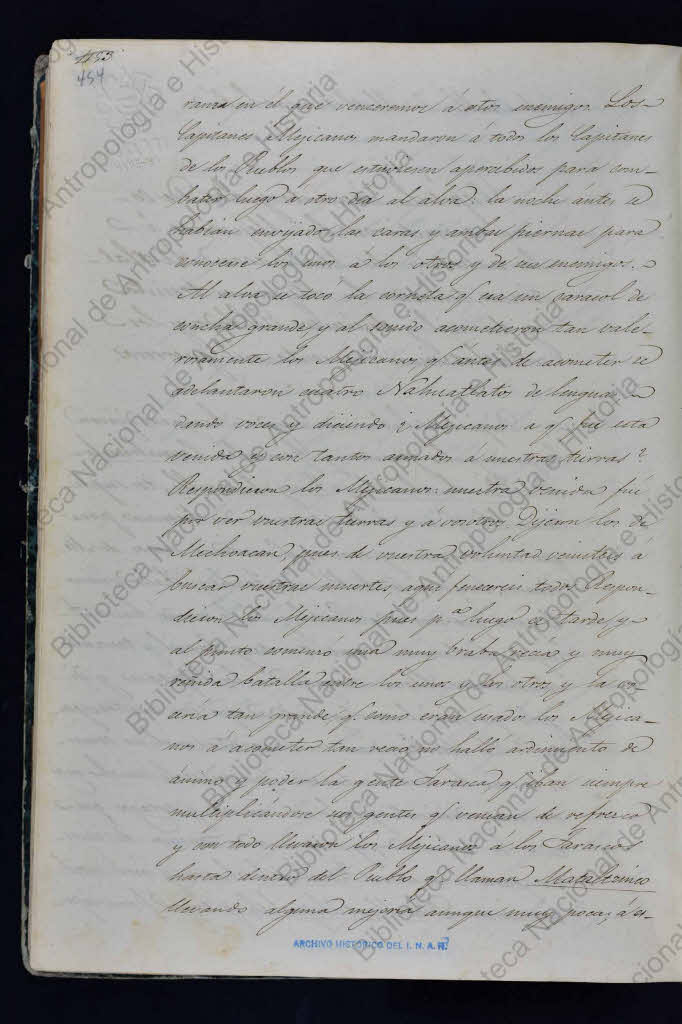 453
454
ranza en él que venceremos á estos enemigos. Los
Capitanes Mejicanos mandaron á todos los Capitanes
de los Pueblos que estuviesen apercebidos para com-
batir luego á otro dia al alva: la noche ántes se
habían envijado las caras y ambas piernas para
conocerse los unos á los otros y de sus enemigos.
Al alva se tocó la corneta q.e era un caracol de
concha grande y al sonido acometieron tan vale-
rosamente los Mejicanos, q.e ántes de acometer se
adelantaron cuatro Nahuatlatos de lengua
dando voces y diciendo ¿Mejicanos a q.e fué esta
venida y con tantos armados á nuestras tierras?
Respondieron los Mejicanos: nuestra venida fué
por ver vuestras tierras y á vosotros. Dijeron los de
Michoacan, pues de vuestra voluntad venisteis á
buscar vuestras muertes aqui fenecereis todos. Respon-
dieron los Mejicanos pues p.a luego es tarde, y
al punto comenzó una muy braba, recia y muy
reñida batalla entre los unos y los otros, y la vo-
cería tan grande q.e como eran usados los Mejica-
nos á acometer tan recio, no halló ardimiento de
ánimo y poder la gente Tarasca q.e iban siempre
multiplicándose sus gentes q.e venian de refresco
y con todo llevaron los Mejicanos á los Tarascos
hasta dentro del Pueblo q.e llaman Mataltzinco
llevando alguna mejoria aunque muy poca; á es-
ARCHIVO HISTÓRICO DEL I. N. A. H.
Biblioteca Nacional de Antropología e Historia